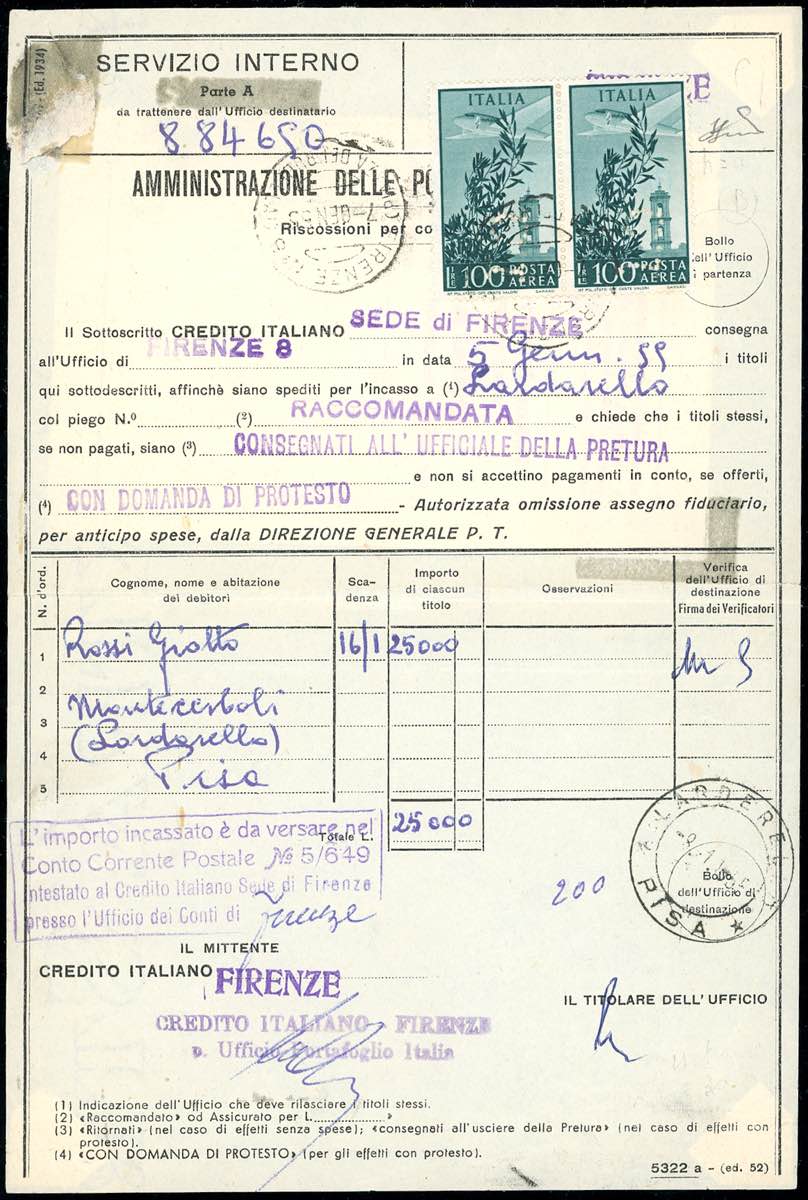 (Ed. 1934)
SERVIZIO INTERNO
Parte A
da trattenere dall'Ufficio destinatario
884690
AMMINISTRAZIONE DELLE PO
Riscossioni per co
ITALIA
LIRE 100 POSTA AEREA
ITALIA
LIRE 100 POSTA AEREA
7-GEN 55
Bollo
dell'Ufficio
di partenza
Il Sottoscritto CREDITO ITALIANO SEDE di FIRENZE consegna
all'Ufficio di FIRENZE 8 in data 5 Genn. 55 i titoli
qui sottodescritti, affinchè siano spediti per l'incasso a (1) Lardarello
col piego N.º (2) RACCOMANDATA e chiede che i titoli stessi,
se non pagati, siano (3) CONSEGNATI ALL' UFFICIALE DELLA PRETURA
e non si accettino pagamenti in conto, se offerti,
(4) CON DOMANDA DI PROTESTO - Autorizzata omissione assegno fiduciario,
per anticipo spese, dalla DIREZIONE GENERALE P. T.
N. d'ord.
Cognome, nome e abitazione
dei debitori
Sca-
denza
Importo
di ciascun
titolo
Osservazioni
Verifica
dell'Ufficio di
destinazione
Firma dei Verificatori
1 Rossi Giotto 16/1 25000
2
Montecerboli
3
(Lardarello)
4
Pisa
5
Totale L. 25000
L'importo incassato è da versare nel
Conto Corrente Postale № 5/649
intestato al Credito Italiano Sede di Firenze
presso l'Ufficio dei Conti di Firenze
200
LARDEREL
PISA
Bollo
dell'Ufficio di
destinazione
IL MITTENTE
CREDITO ITALIANO FIRENZE
CREDITO ITALIANO - FIRENZE
p. Ufficio Portafoglio Italia
IL TITOLARE DELL'UFFICIO
(1) Indicazione dell'Ufficio che deve rilasciare i titoli stessi.
(2) «Raccomandato» od Assicurato per L. »
(3) «Ritornati» (nel caso di effetti senza spese); «consegnati all'usciere della Pretura» (nel caso di effetti con
protesto).
(4) «CON DOMANDA DI PROTESTO» (per gli effetti con protesto).
5322 a - (ed. 52)